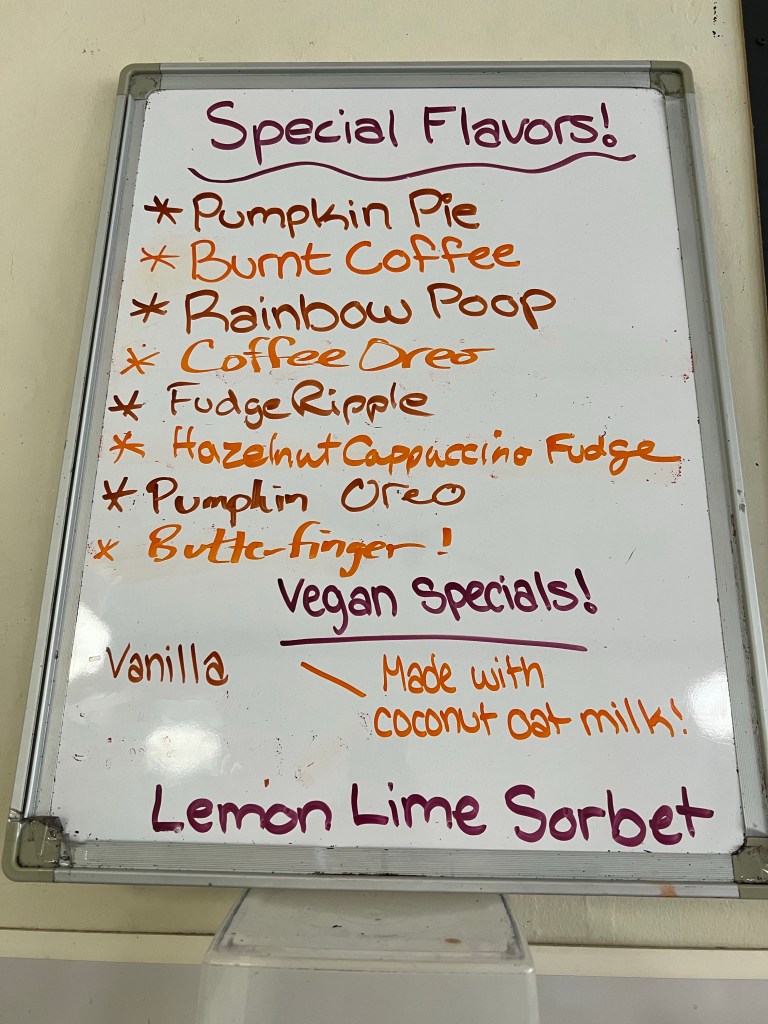 Special Flavors!
* Pumpkin Pie
* Burnt Coffee
* Rainbow Poop
* Coffee Oreo
* Fudge Ripple
* Hazelnut Cappuccino Fudge
* Pumpkin Oreo
* Butterfinger!
Vegan Specials!
Vanilla \ Made with
coconut oat milk!
Lemon Lime Sorbet